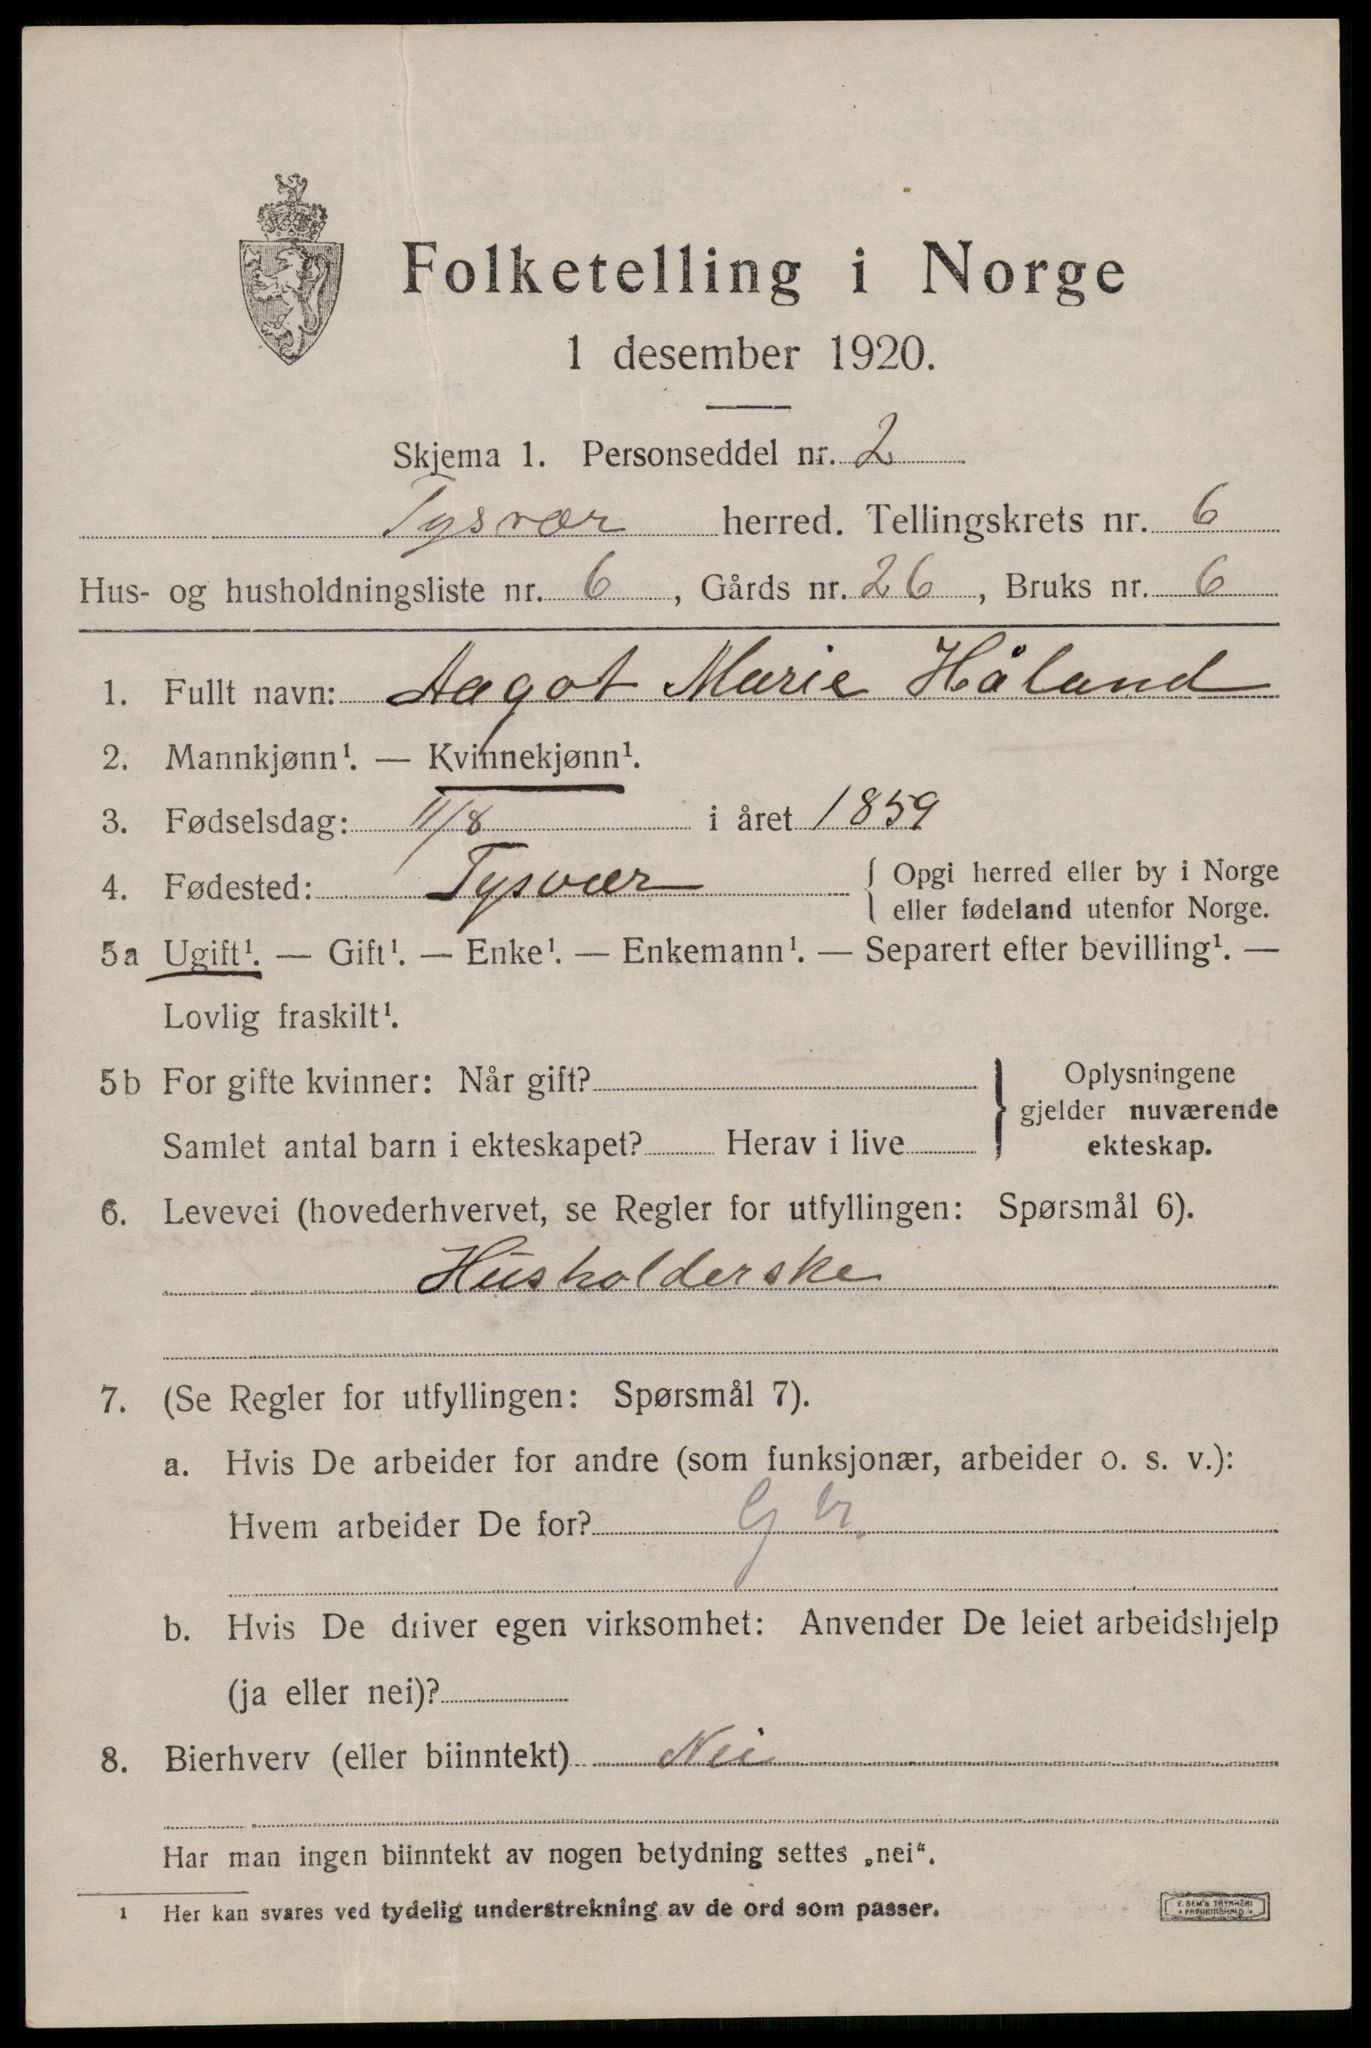 Folketelling i Norge
1 desember 1920.
Skjema 1. Personseddel nr. 2
Tysvær herred. Tellingskrets nr. 6
Hus- og husholdningsliste nr. 6, Gårds nr. 26, Bruks nr. 6
1. Fullt navn: Aagot Marie Håland
2. Mannkjønn¹. — Kvinnekjønn¹.
3. Fødselsdag: 11/8 i året 1859
4. Fødested: Tysvær { Opgi herred eller by i Norge
eller fødeland utenfor Norge.
5a Ugift¹. — Gift¹. — Enke¹. — Enkemann¹. — Separert efter bevilling¹. —
Lovlig fraskilt¹.
5b For gifte kvinner: Når gift?
Samlet antal barn i ekteskapet? Herav i live
} Oplysningene
gjelder nuværende
ekteskap.
6. Levevei (hovederhvervet, se Regler for utfyllingen: Spørsmål 6).
Husholderske
7. (Se Regler for utfyllingen: Spørsmål 7).
a. Hvis De arbeider for andre (som funksjonær, arbeider o. s. v.):
Hvem arbeider De for?
b. Hvis De driver egen virksomhet: Anvender De leiet arbeidshjelp
(ja eller nei)?
8. Bierhverv (eller biinntekt) Nei
Har man ingen biinntekt av nogen betydning settes „nei“.
1 Her kan svares ved tydelig understrekning av de ord som passer.
E. SEM'S TRYKKERI
FREDRIKSHALD